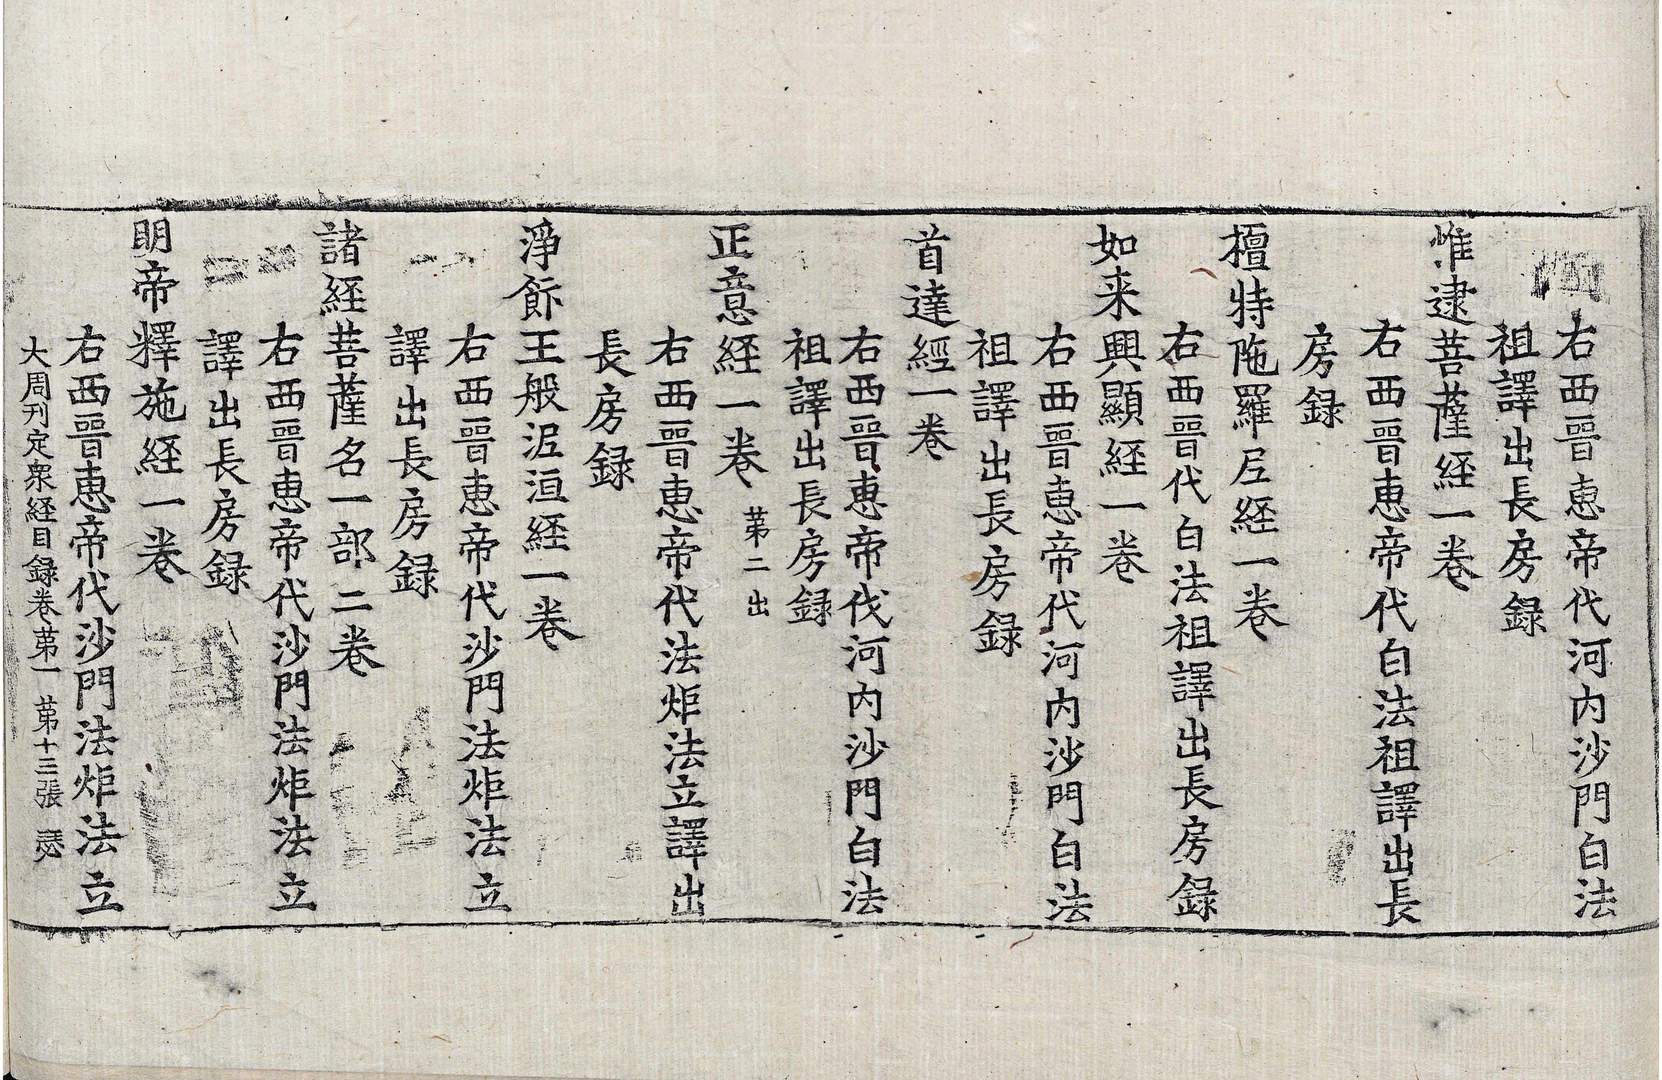 右西晉恵帝代河内沙門白法
祖譯出長房録
惟逮菩薩経一卷
右西晉恵帝代白法祖譯出長
房録
檀特陁羅尼経一卷
右西晉代白法祖譯出長房録
如来興顯経一卷
右西晉恵帝代河内沙門白法
祖譯出長房録
首達經一卷
右西晉恵帝代河内沙門白法
祖譯出長房録
正意経一卷 苐二出
右西晉恵帝代法炬法立譯出
長房録
淨飯王般泥洹経一卷
右西晉恵帝代沙門法炬法立
譯出長房録
諸経菩薩名一部二卷
右西晉恵帝代沙門法炬法立
譯出長房録
明帝釋施経一卷
右西晉恵帝代沙門法炬法立
大周刊定衆経目録卷苐一 苐十三張